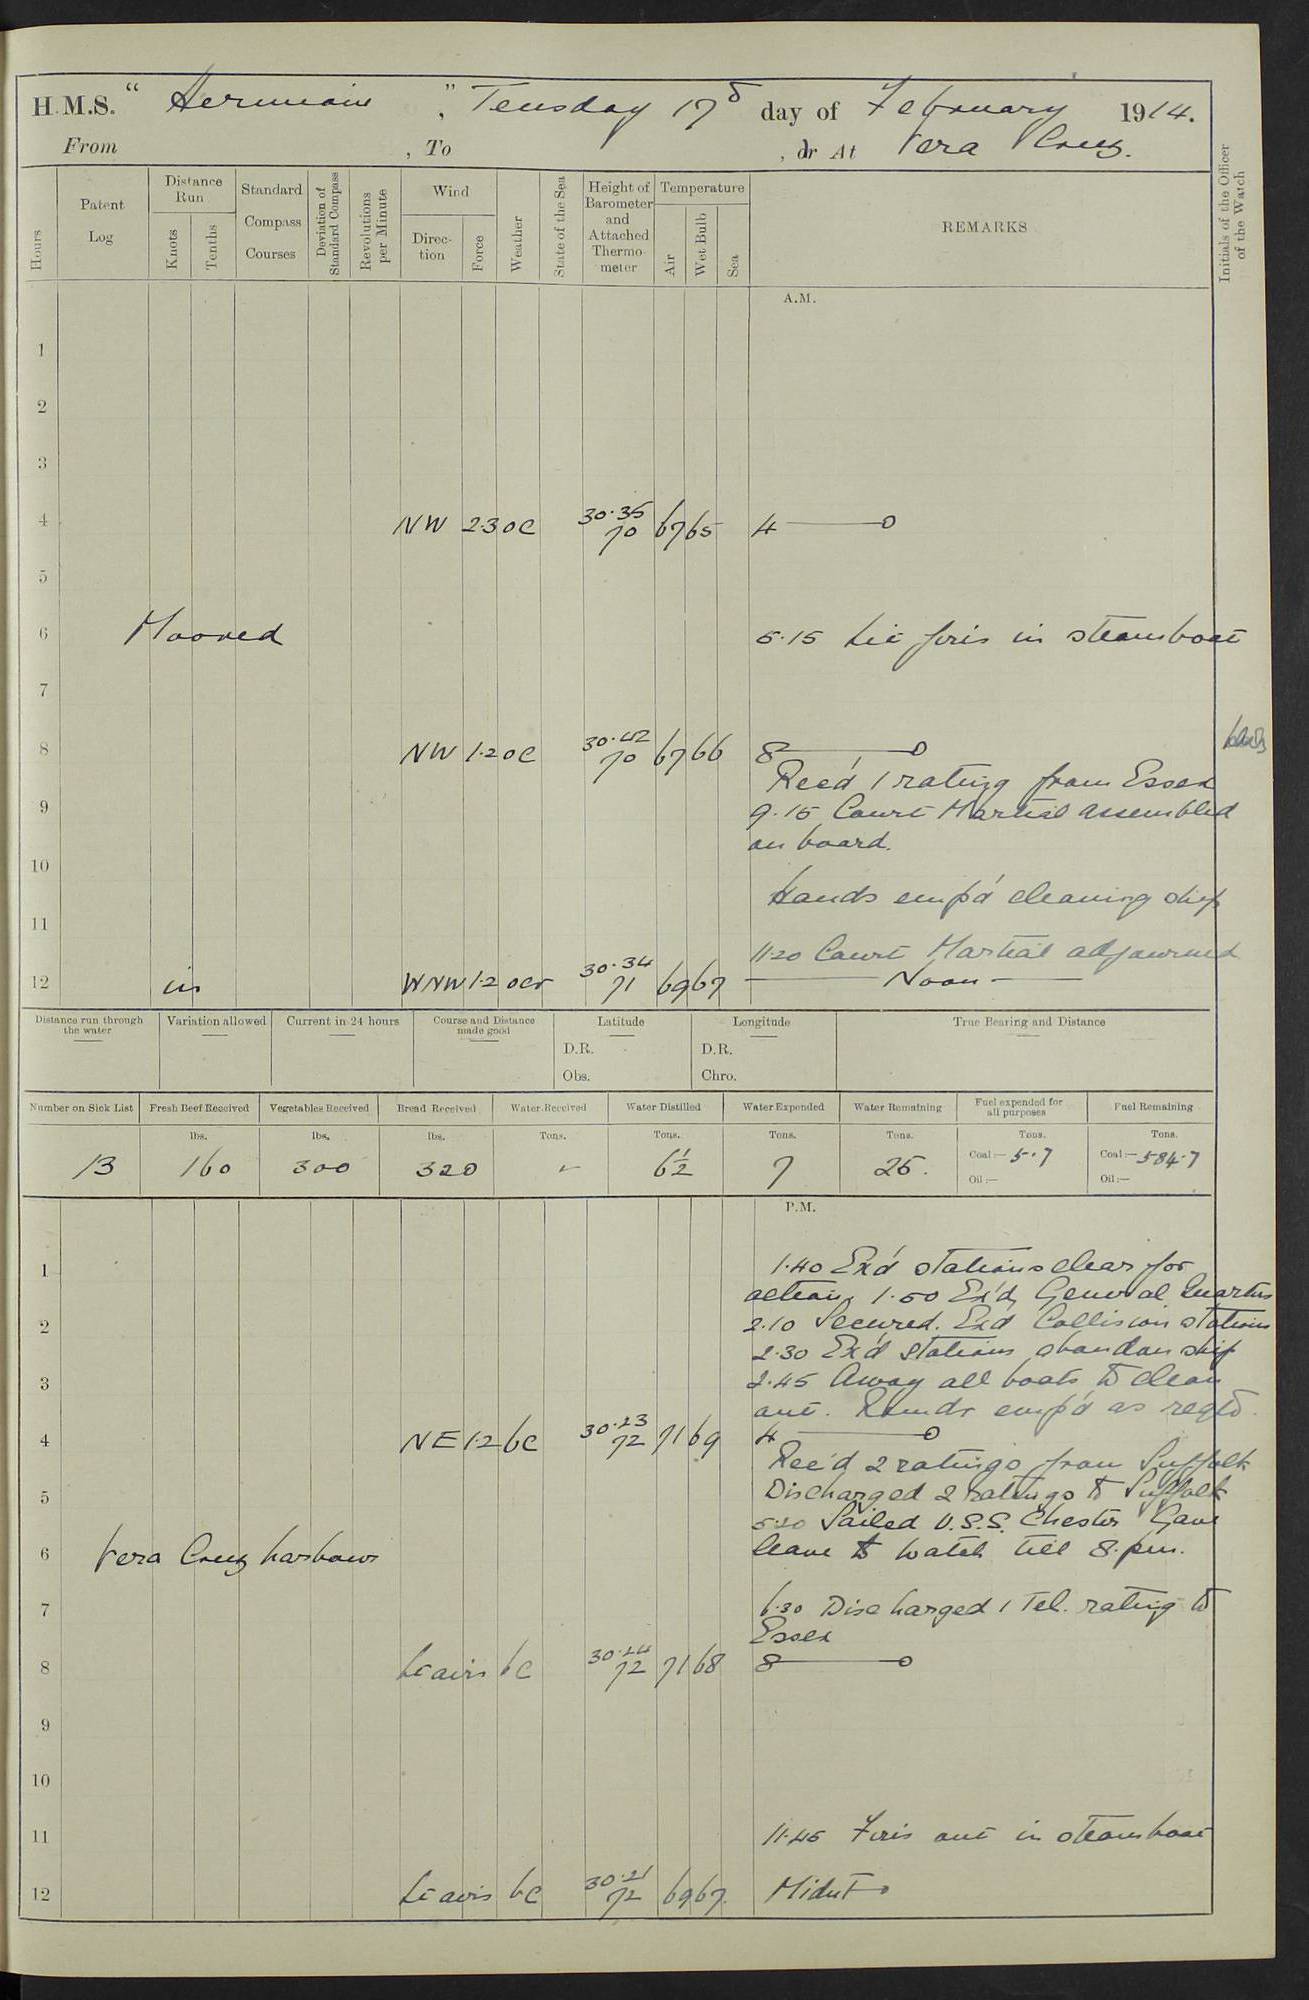 H.M.S. "Hermione", Teusday 17th day of February 1914.
From , To , or At Vera Cruz.
Hours
Patent Log
Distance Run
Knots
Tenths
Standard Compass Courses
Deviation of Standard Compass
Revolutions per Minute
Wind
Direction
Force
Weather
State of the Sea
Height of Barometer and Attached Thermometer
Temperature
Air
Wet Bulb
Sea
REMARKS
Initials of the Officer of the Watch
A.M.
1
2
3
4 NW 2.3 oc 30.35 70 67 65 4
5
6 Moored 5.15 Lit fires in steamboat
7
8 NW 1.2 oc 30.42 70 67 66 8
Rec'd 1 rating from Essex
9 9.15 Court Martial assembled
on board.
10
Hands emp'd cleaning ship
11
11.20 Court Martial adjourned
12 in WNW 1.2 ocr 30.34 71 69 67 Noon
Distance run through the water
Variation allowed
Current in 24 hours
Course and Distance made good
Latitude
D.R.
Obs.
Longitude
D.R.
Chro.
True Bearing and Distance
Number on Sick List
Fresh Beef Received
Vegetables Received
Bread Received
Water Received
Water Distilled
Water Expended
Water Remaining
Fuel expended for all purposes
Fuel Remaining
lbs. lbs. lbs. Tons. Tons. Tons. Tons. Tons. Tons.
13 160 300 320 - 6½ 7 25. Coal:— 5.7 Coal:— 584.7
Oil:— Oil:—
P.M.
1 1.40 Ex'd stations clear for
action, 1.50 Ex'd General Quarters
2 2.10 Secured. Exd Collision stations
2.30 Ex'd stations abandon ship
3 2.45 Away all boats to clean
out. Hands emp'd as reqd.
4 NE 1.2 bc 30.23 72 71 69 4
Rec'd 2 ratings from Suffolk
5 Discharged 2 ratings to Suffolk
5.20 Sailed U.S.S. Chester Gave
6 Vera Cruz harbour leave to watch till 8.pm.
7 6.30 Discharged 1 Tel. rating to
Essex
8 Lt airs bc 30.24 72 71 68 8
9
10
11 11.45 Fires out in steamboat
12 Lt airs bc 30.21 72 69 67. Midnt